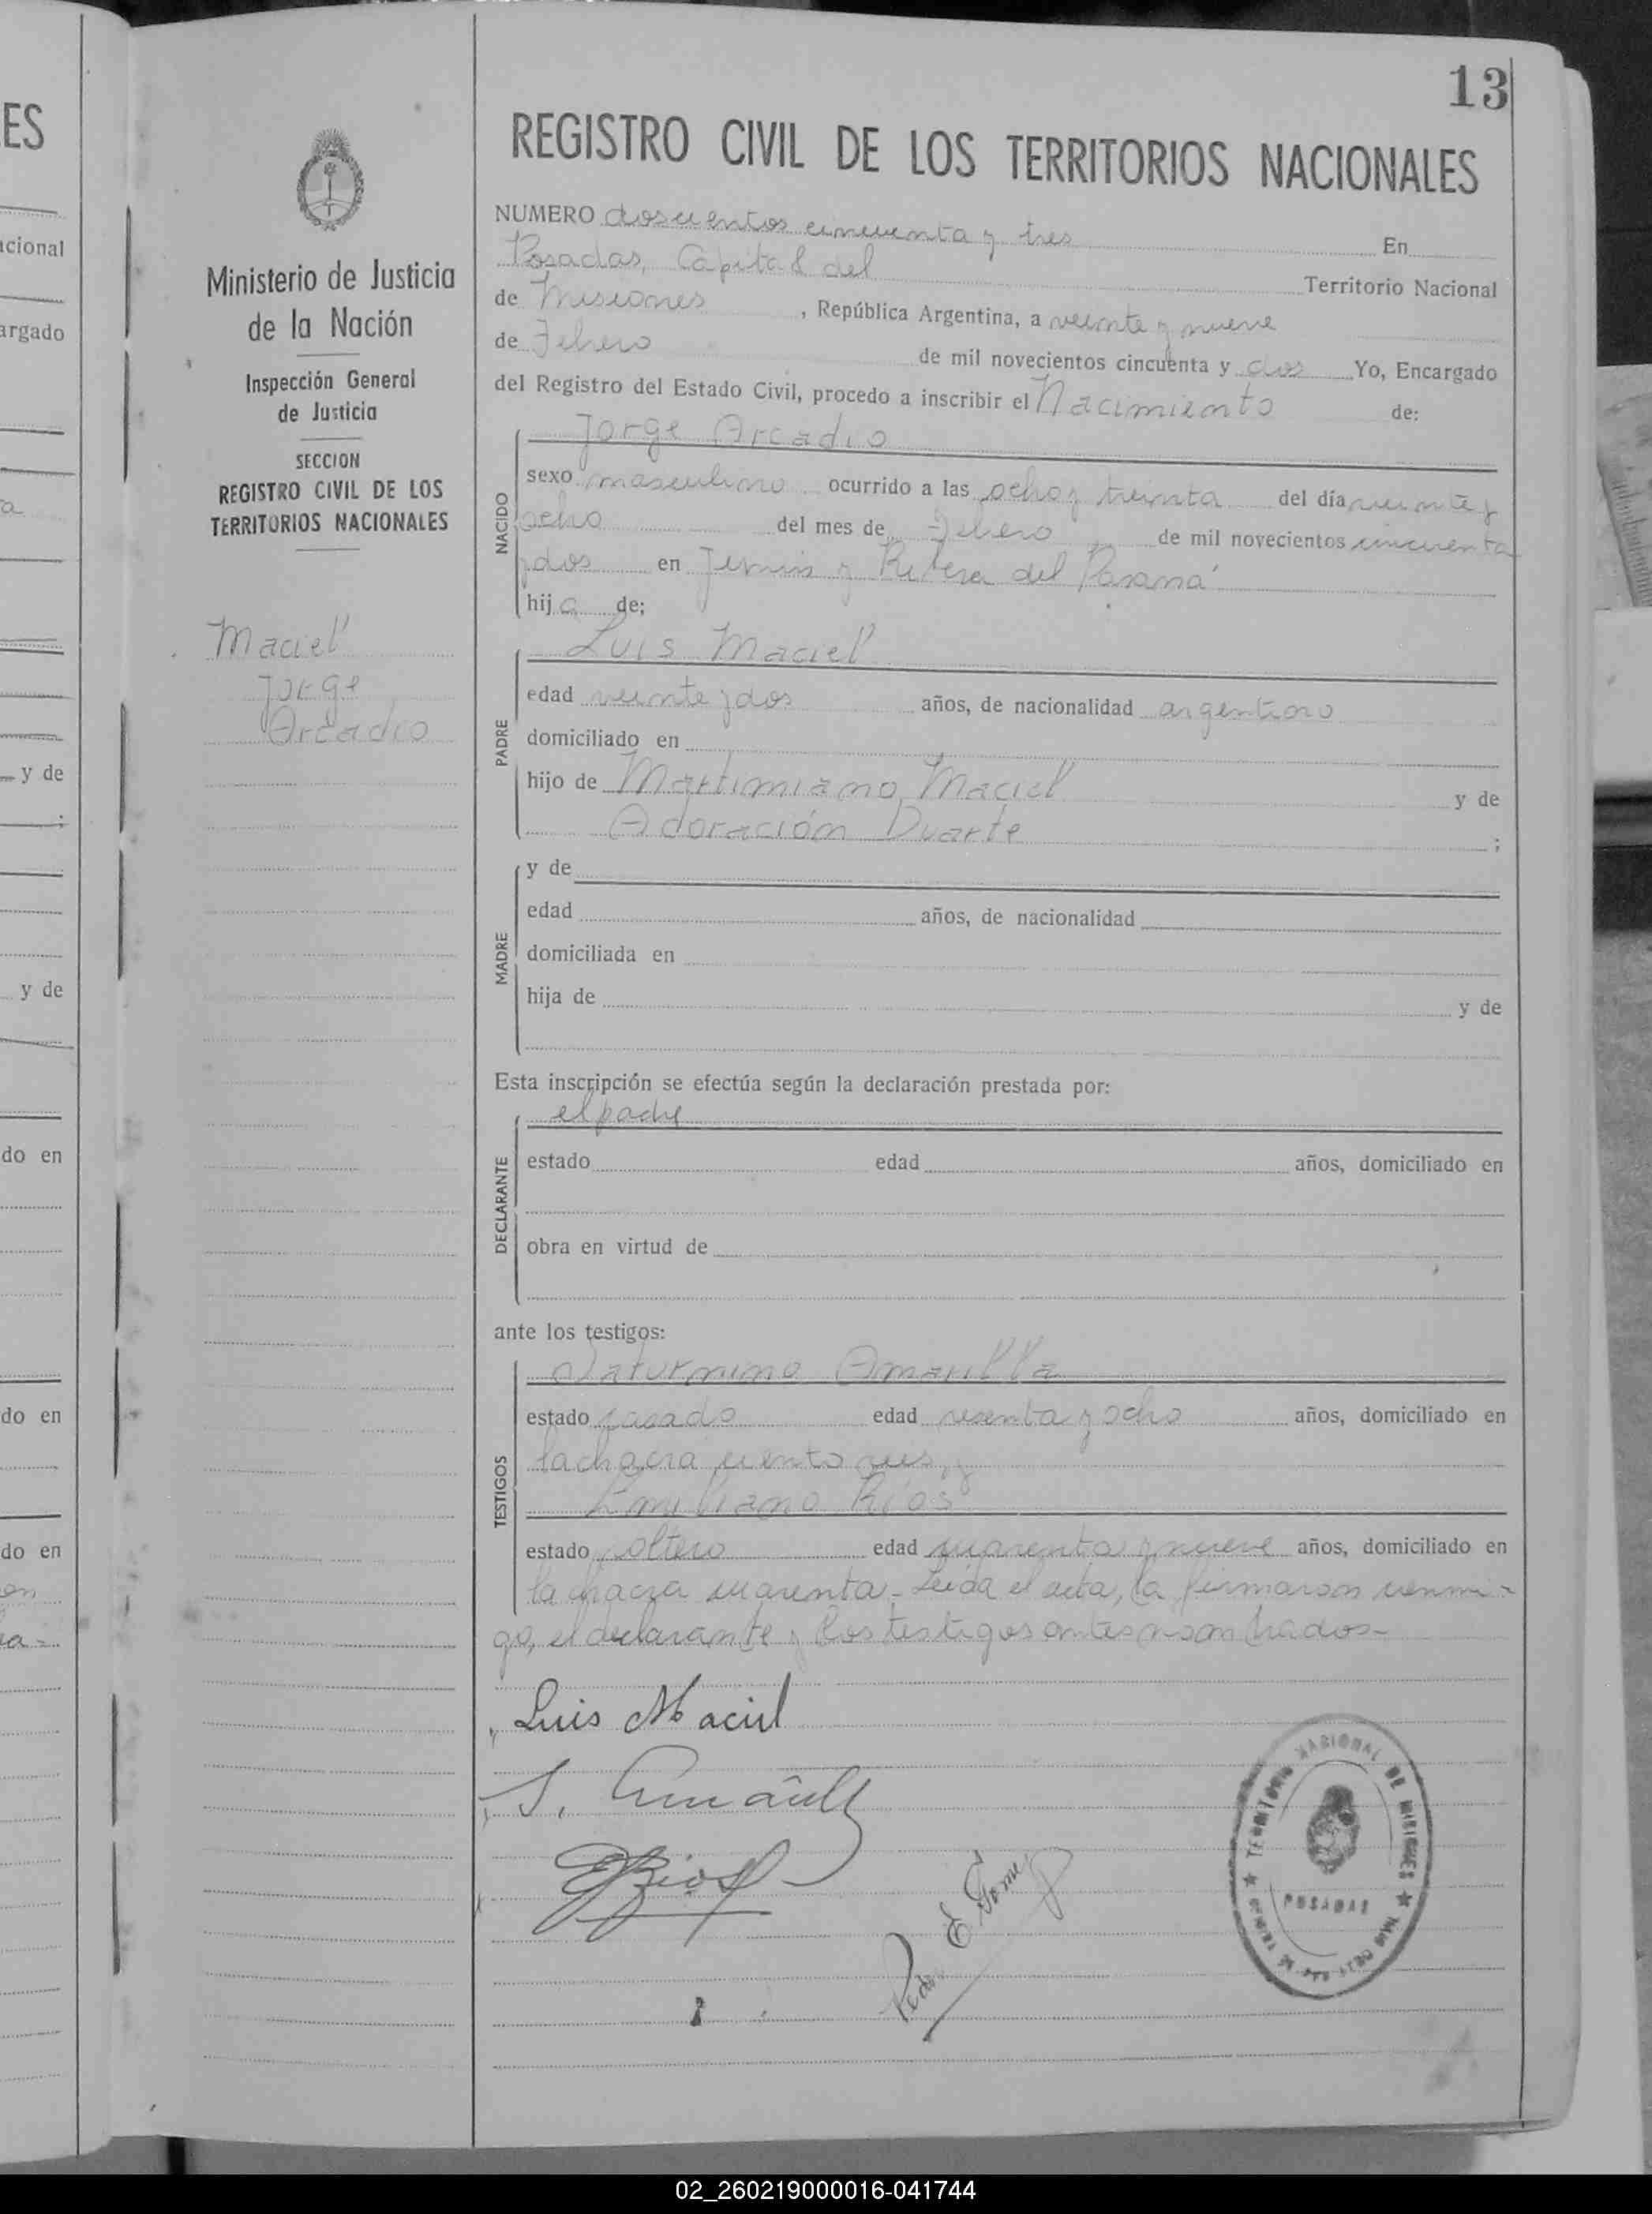 13
REGISTRO CIVIL DE LOS TERRITORIOS NACIONALES
Ministerio de Justicia
de la Nación
Inspección General
de Justicia
SECCION
REGISTRO CIVIL DE LOS
TERRITORIOS NACIONALES
Maciel
Jorge
Arcadio
NUMERO doscientos cincuenta y tres En
Posadas, Capital del Territorio Nacional
de Misiones, República Argentina, a veinte y nueve
de Febrero de mil novecientos cincuenta y dos Yo, Encargado
del Registro del Estado Civil, procedo a inscribir el Nacimiento de:
NACIDO
Jorge Arcadio
sexo masculino ocurrido a las ocho y treinta del día veinte y
ocho del mes de Febrero de mil novecientos cincuenta
y dos en Junin y Ribera del Paraná
hijo de;
PADRE
Luis Maciel
edad veinte y dos años, de nacionalidad argentino
domiciliado en
hijo de Martimiano Maciel y de
Adoración Duarte ;
MADRE
y de
edad años, de nacionalidad
domiciliada en
hija de y de
Esta inscripción se efectúa según la declaración prestada por:
DECLARANTE
el padre
estado edad años, domiciliado en
obra en virtud de
ante los testigos:
TESTIGOS
Saturnino Amarilla
estado casado edad sesenta y ocho años, domiciliado en
la chacra ciento y
Emiliano Ríos
estado soltero edad cuarenta y nueve años, domiciliado en
la chacra cuarenta - Leida el acta, la firmaron conmi-
go, el declarante y los testigos antes nombrados-
Luis Maciel
S. Amarilla
E Rios
Pedro E. Gomez
TERRITORIO NACIONAL DE MISIONES
POSADAS
ES
acional
argado
a
y de
;
y de
do en
do en
do en
02_260219000016-041744